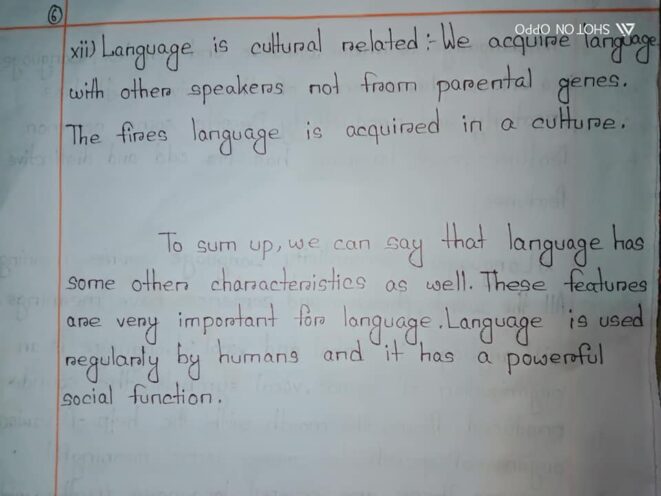 6
SHOT ON OPPO
xii) Language is cultural related :- We acquire language
with other speakers not from parental genes.
The fires language is acquired in a culture.
To sum up, we can say that language has
some other characteristics as well. These features
are very important for language. Language is used
regularly by humans and it has a powerful
social function.